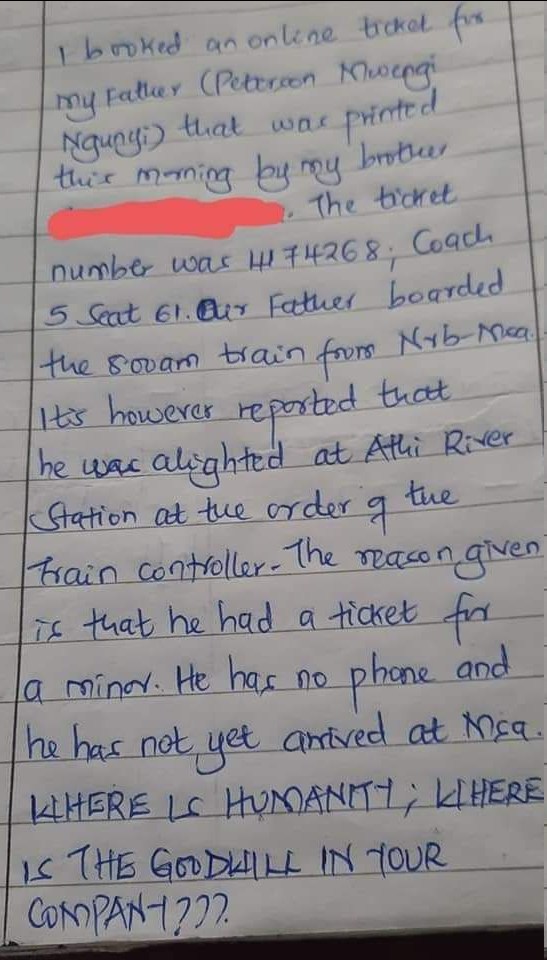 I booked an online ticket for
my Father (Peterson Mwengi
Ngungi) that was printed
this morning by my brother
. The ticket
number was 4174268; Coach
5 Seat 61. Our Father boarded
the 8:00am train from Nrb-Msa.
It's however reported that
he was alighted at Athi River
Station at the order of the
train controller. The reason given
is that he had a ticket for
a minor. He has no phone and
he has not yet arrived at Msa.
WHERE IS HUMANITY; WHERE
IS THE GOODWILL IN YOUR
COMPANY???